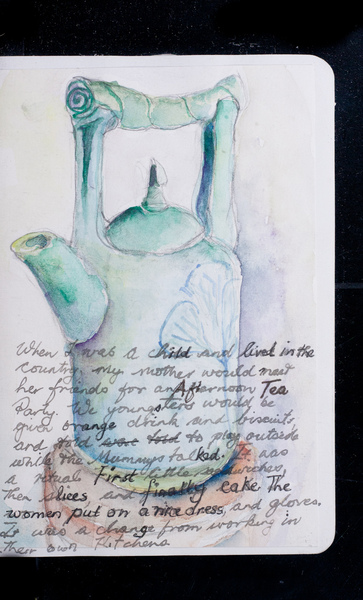 When I was a child and lived in the
country, my mother would meet
her friends for an Afternoon Tea
Party. We youngsters would be
given orange drink and biscuits
and told were told to play outside
while the Mummys talked. It was
a ritual. First little sandwiches,
then slices, and finally cake. The
women put on a nice dress, and gloves.
It was a change from working in
their own Kitchens